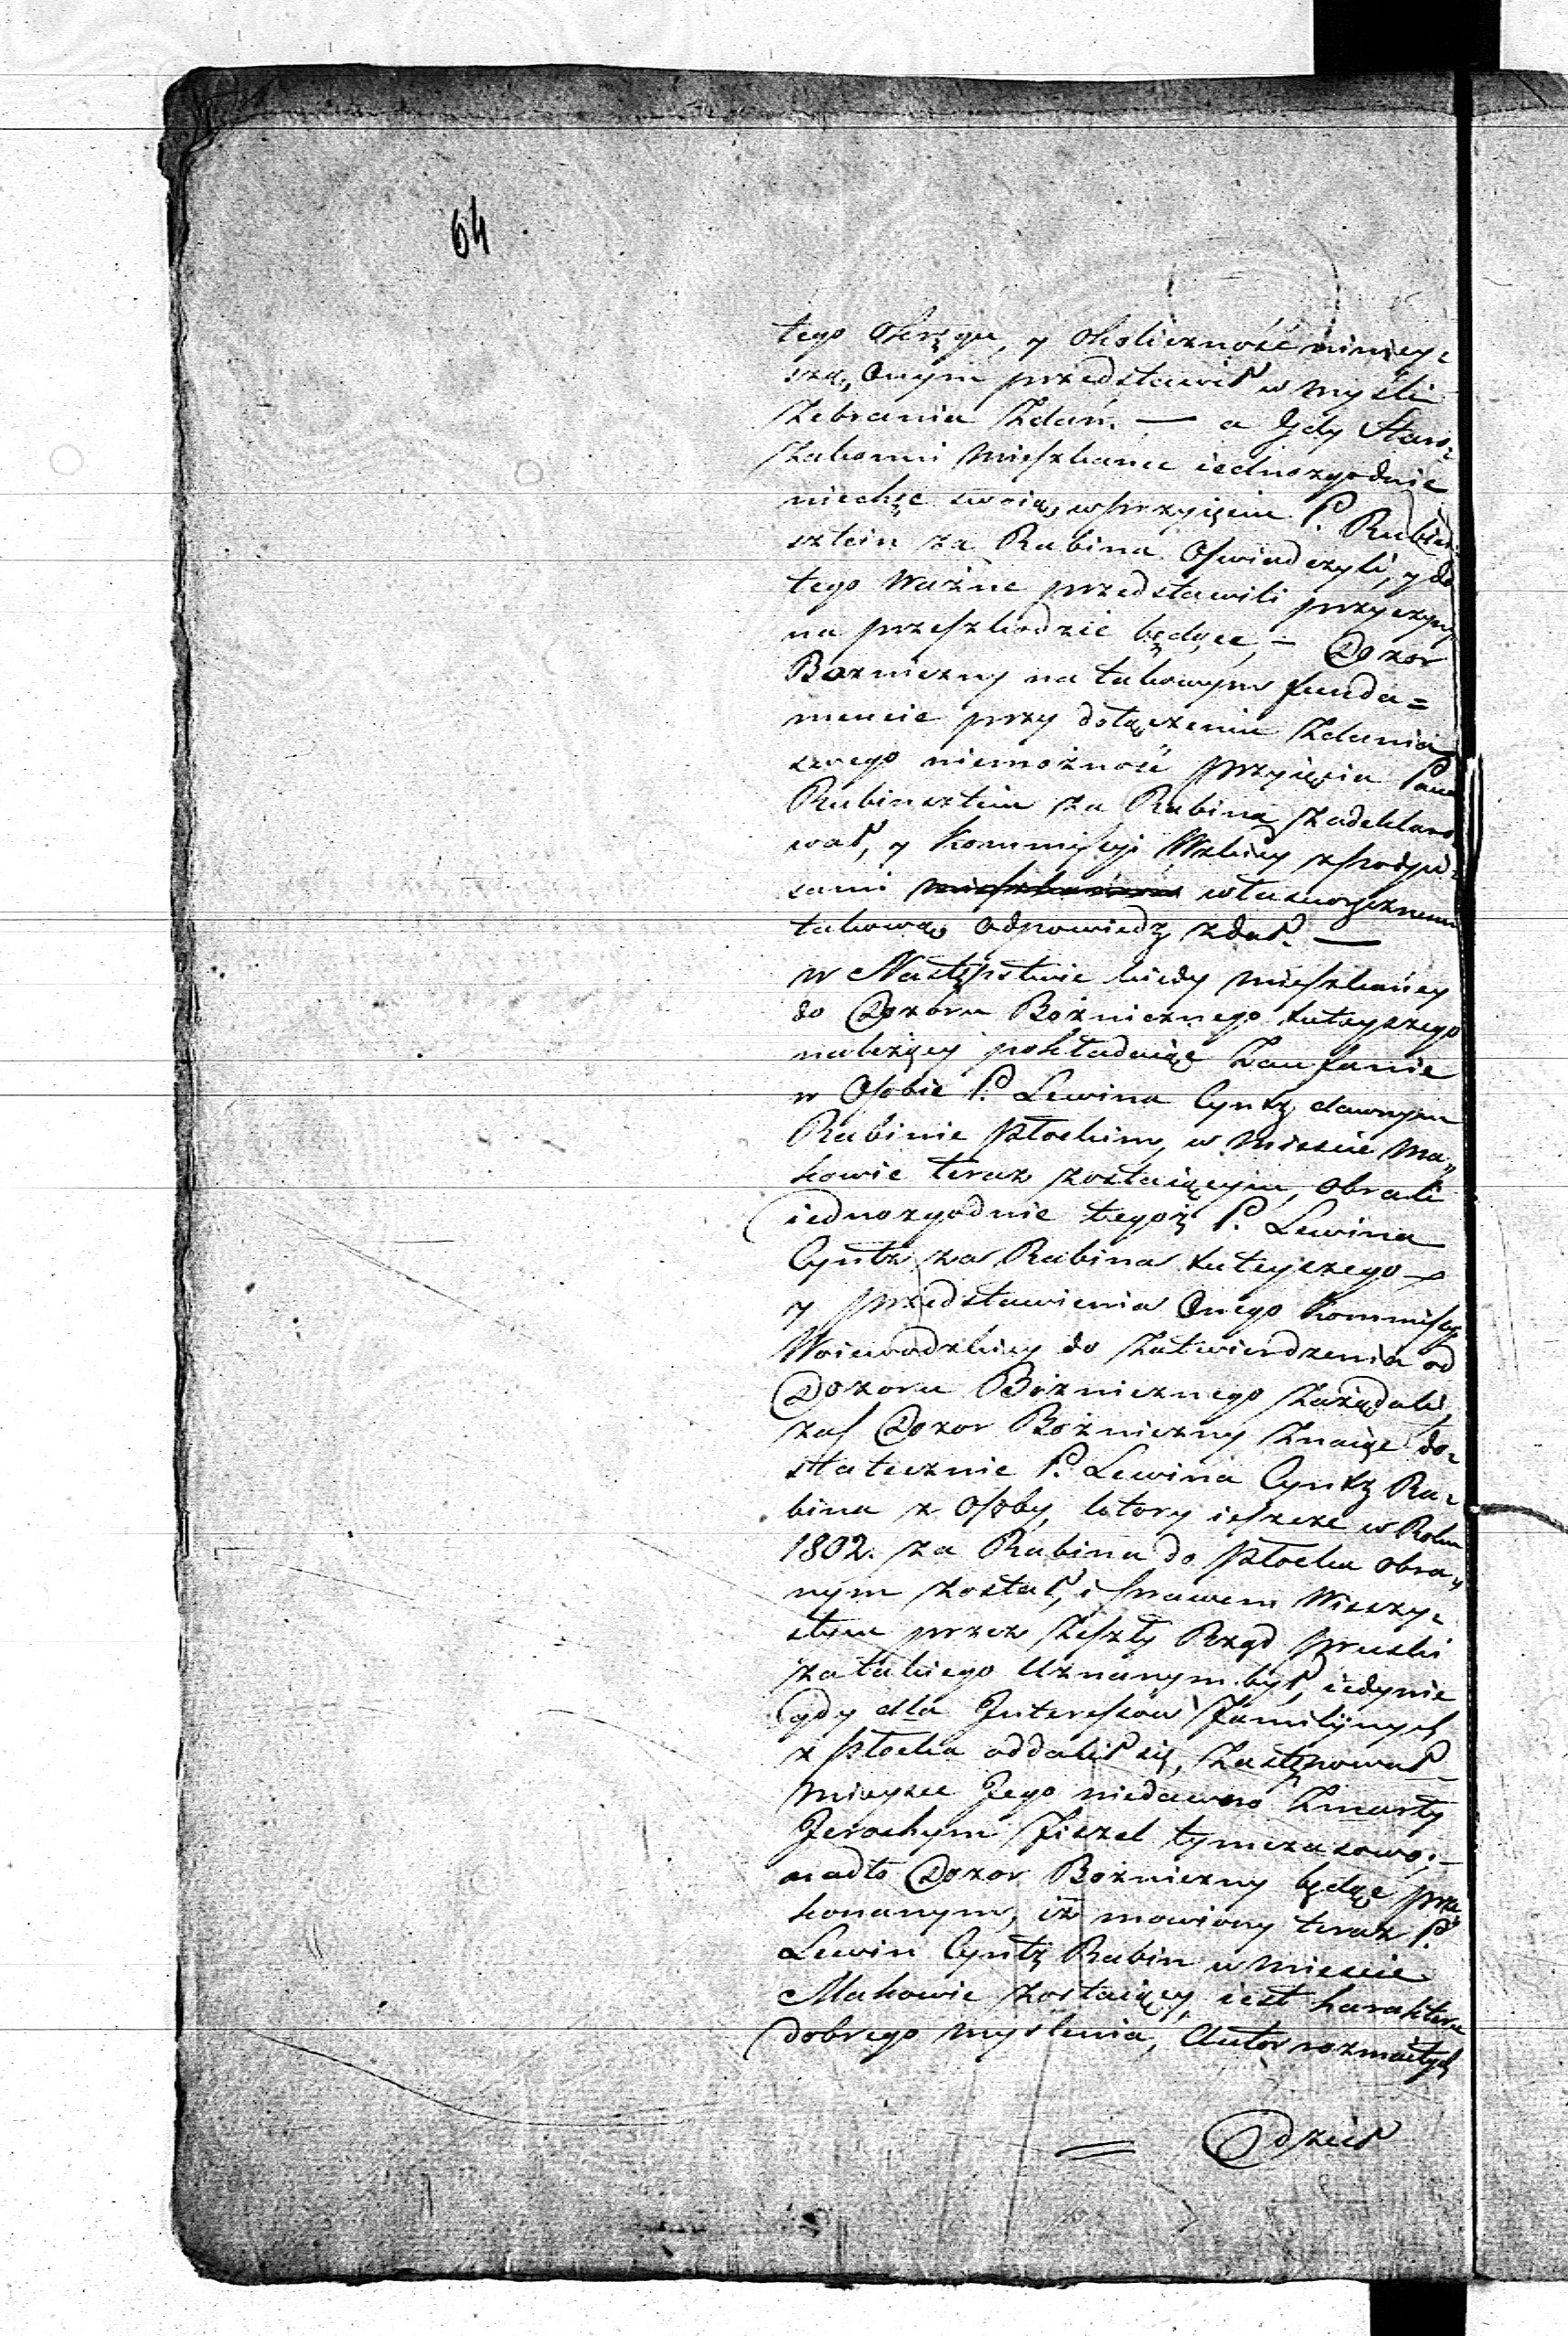 64
tego Okręgu, y okoliczność niniey=
szą, Onym przedstawił w myśli
Zebrania Zdań. — a Gdy Staro=
Zakonni Mieszkance iednozgodnie
niechęc swoią, w przyięciu P. Rubin=
sztein za Rabina Oświadczyli, y do
tego Ważne przedstawili przyczyny
na przeszkodzie będące, — Dozor
Bozniczny na takowym funda=
mencie przy dołączeniu Zdania
swego niemożność przyięcia Pana
Rubinsztein za Rabina Zadeklaro=
wał, y Kommissyi Wzkiey z podpi=
sami własnoręcznemi
takową, odpowiedz zdał. —
w Następstwie kiedy Mieszkańcy
do Dozoru Bożnicznego tuteyszego
należący pokładaiąc Zaufanie
w Osobie P. Lewina Cyntz dawnym
Rabinie Płockim, w Miescie Ma=
kowie teraz zostaiącym, obrali
iednozgodnie tegoż P. Lewina
Cyntz za Rabina tuteyszego
y przedstawienia Onego Kommissyi
Woiewodzkiey do Zatwierdzenia od
Dozoru Bożnicznego Zażądali,
zaś Dozor Bożniczny Znaiąc do=
statecznie P. Lewina Cyntz Ra=
bina z Osoby, ktory ieszcze w Roku
1802. za Rabina do Płocka obra=
nym został, i prawem Wieczy=
stym przez Zeszły Rząd pruski
za takiego Uznanym był, iedynie
gdy dla Interessow Familijnych
z Płocka oddalił się, Zastępował
Mieysce Jego niedawno Zmarły
Jerochym Fiszel tymczasowo; —
nadto Dozor Bożniczny będąc prze
konanym, iż mowiony teraz P.
Lewin Cyntz Rabin w Miescie
Makowie zostaiący, iest harakteru
dobrego myślenia, Autor rozmaitych
= Dzieł